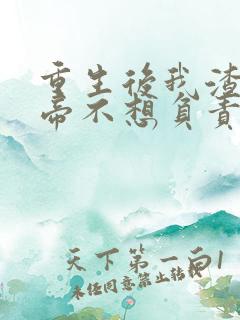 重生後我渣
帝不想負責
天下第一白1
未任同意禁止转载